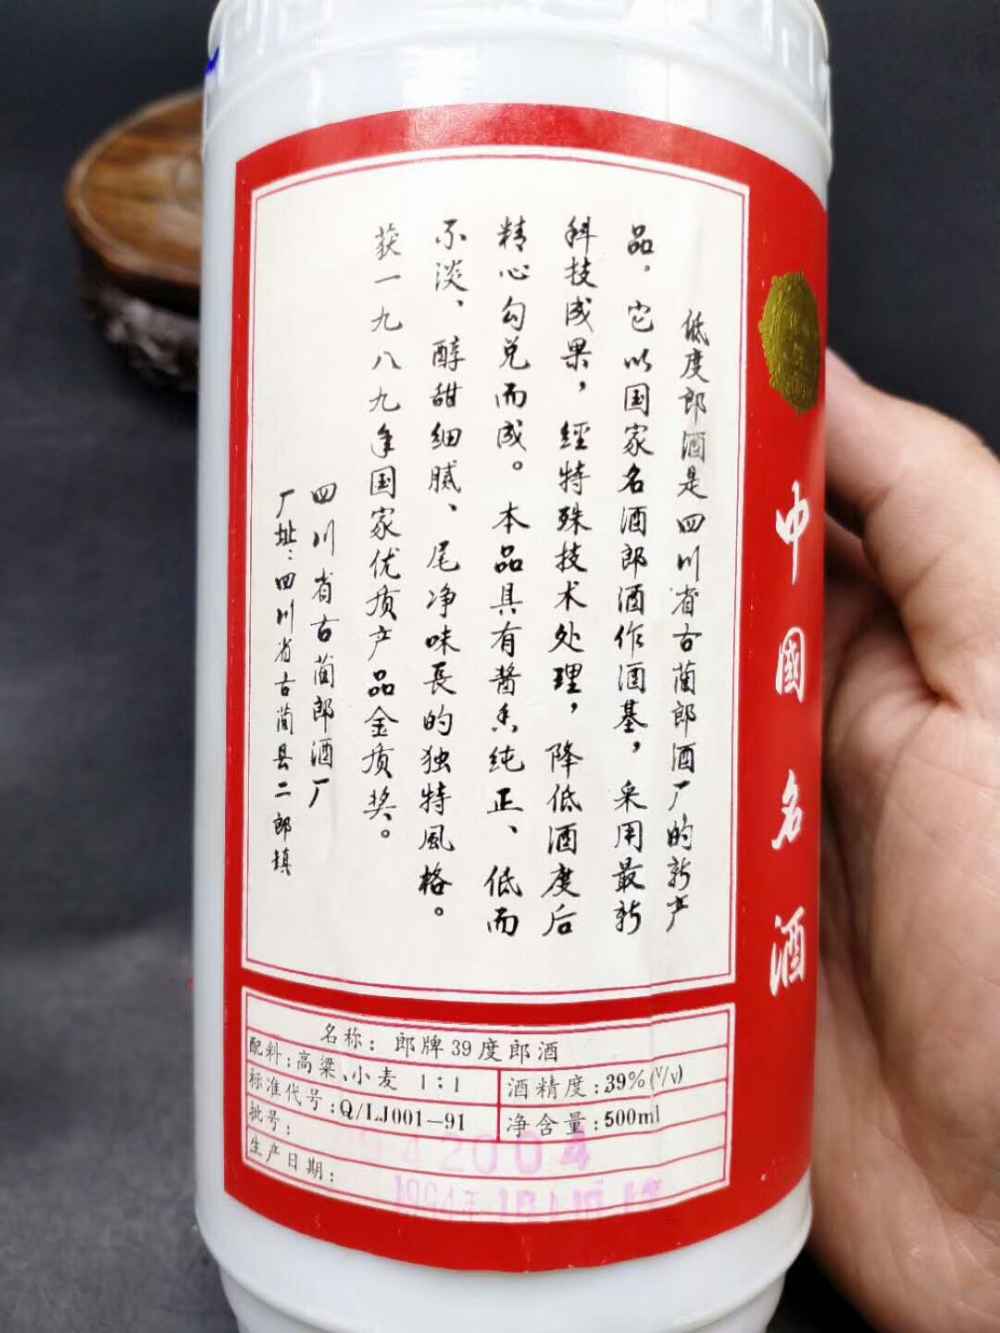 低度郎酒是四川省古蔺郎酒厂的新产
品。它以国家名酒郎酒作酒基，采用最新
科技成果，經特殊技术处理，降低酒度后
精心勾兑而成。本品具有醬香纯正、低而
不淡、醇甜细腻、尾净味長的独特風格。
获一九八九年国家优质产品金质奖。
四川省古蔺郎酒厂
厂址：四川省古蔺县二郎镇
中國名酒
名称：郎牌39度郎酒
配料：高粱、小麦 1：1
酒精度：39%(V/V)
标准代号：Q/LJ001-91
净含量：500ml
批号：
942004
生产日期：
1994年1月